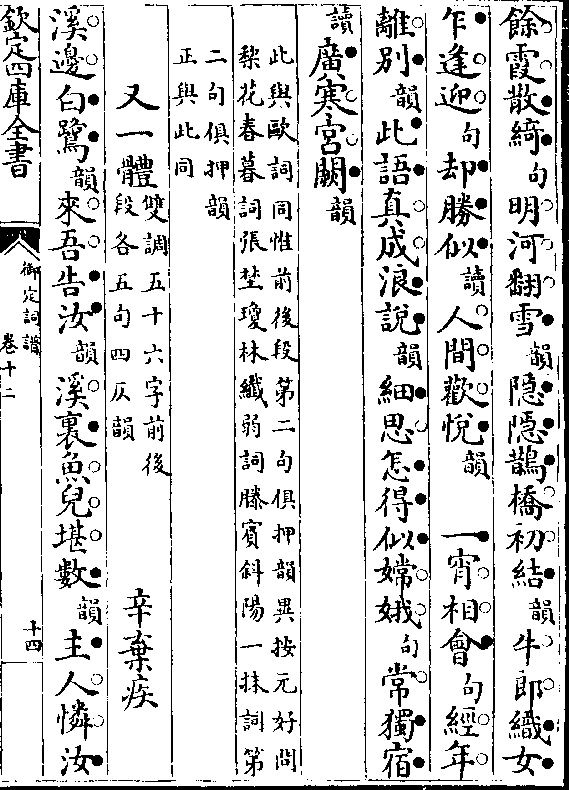 餘霞散綺句明河翻雪韻隠隠鵲橋初結韻牛郎織女
乍逢迎句却勝似讀人間歡悅韻 一宵相會句經年
離別韻此語真成浪說韻細思怎得似嫦娥句常獨宿
讀廣寒宮闕韻
此與歐詞同惟前後段第二句俱押韻異按元好問
梨花春暮詞張埜瓊林纖弱詞滕賓斜陽一抹詞第
二句俱押韻
正與此同
又一體雙調五十六字前後
段各五句四仄韻 辛棄疾
溪邊白鷺韻來吾告汝韻溪裏魚兒堪數韻主人憐汝
欽定四庫全書
御定詞譜
卷十二
十四